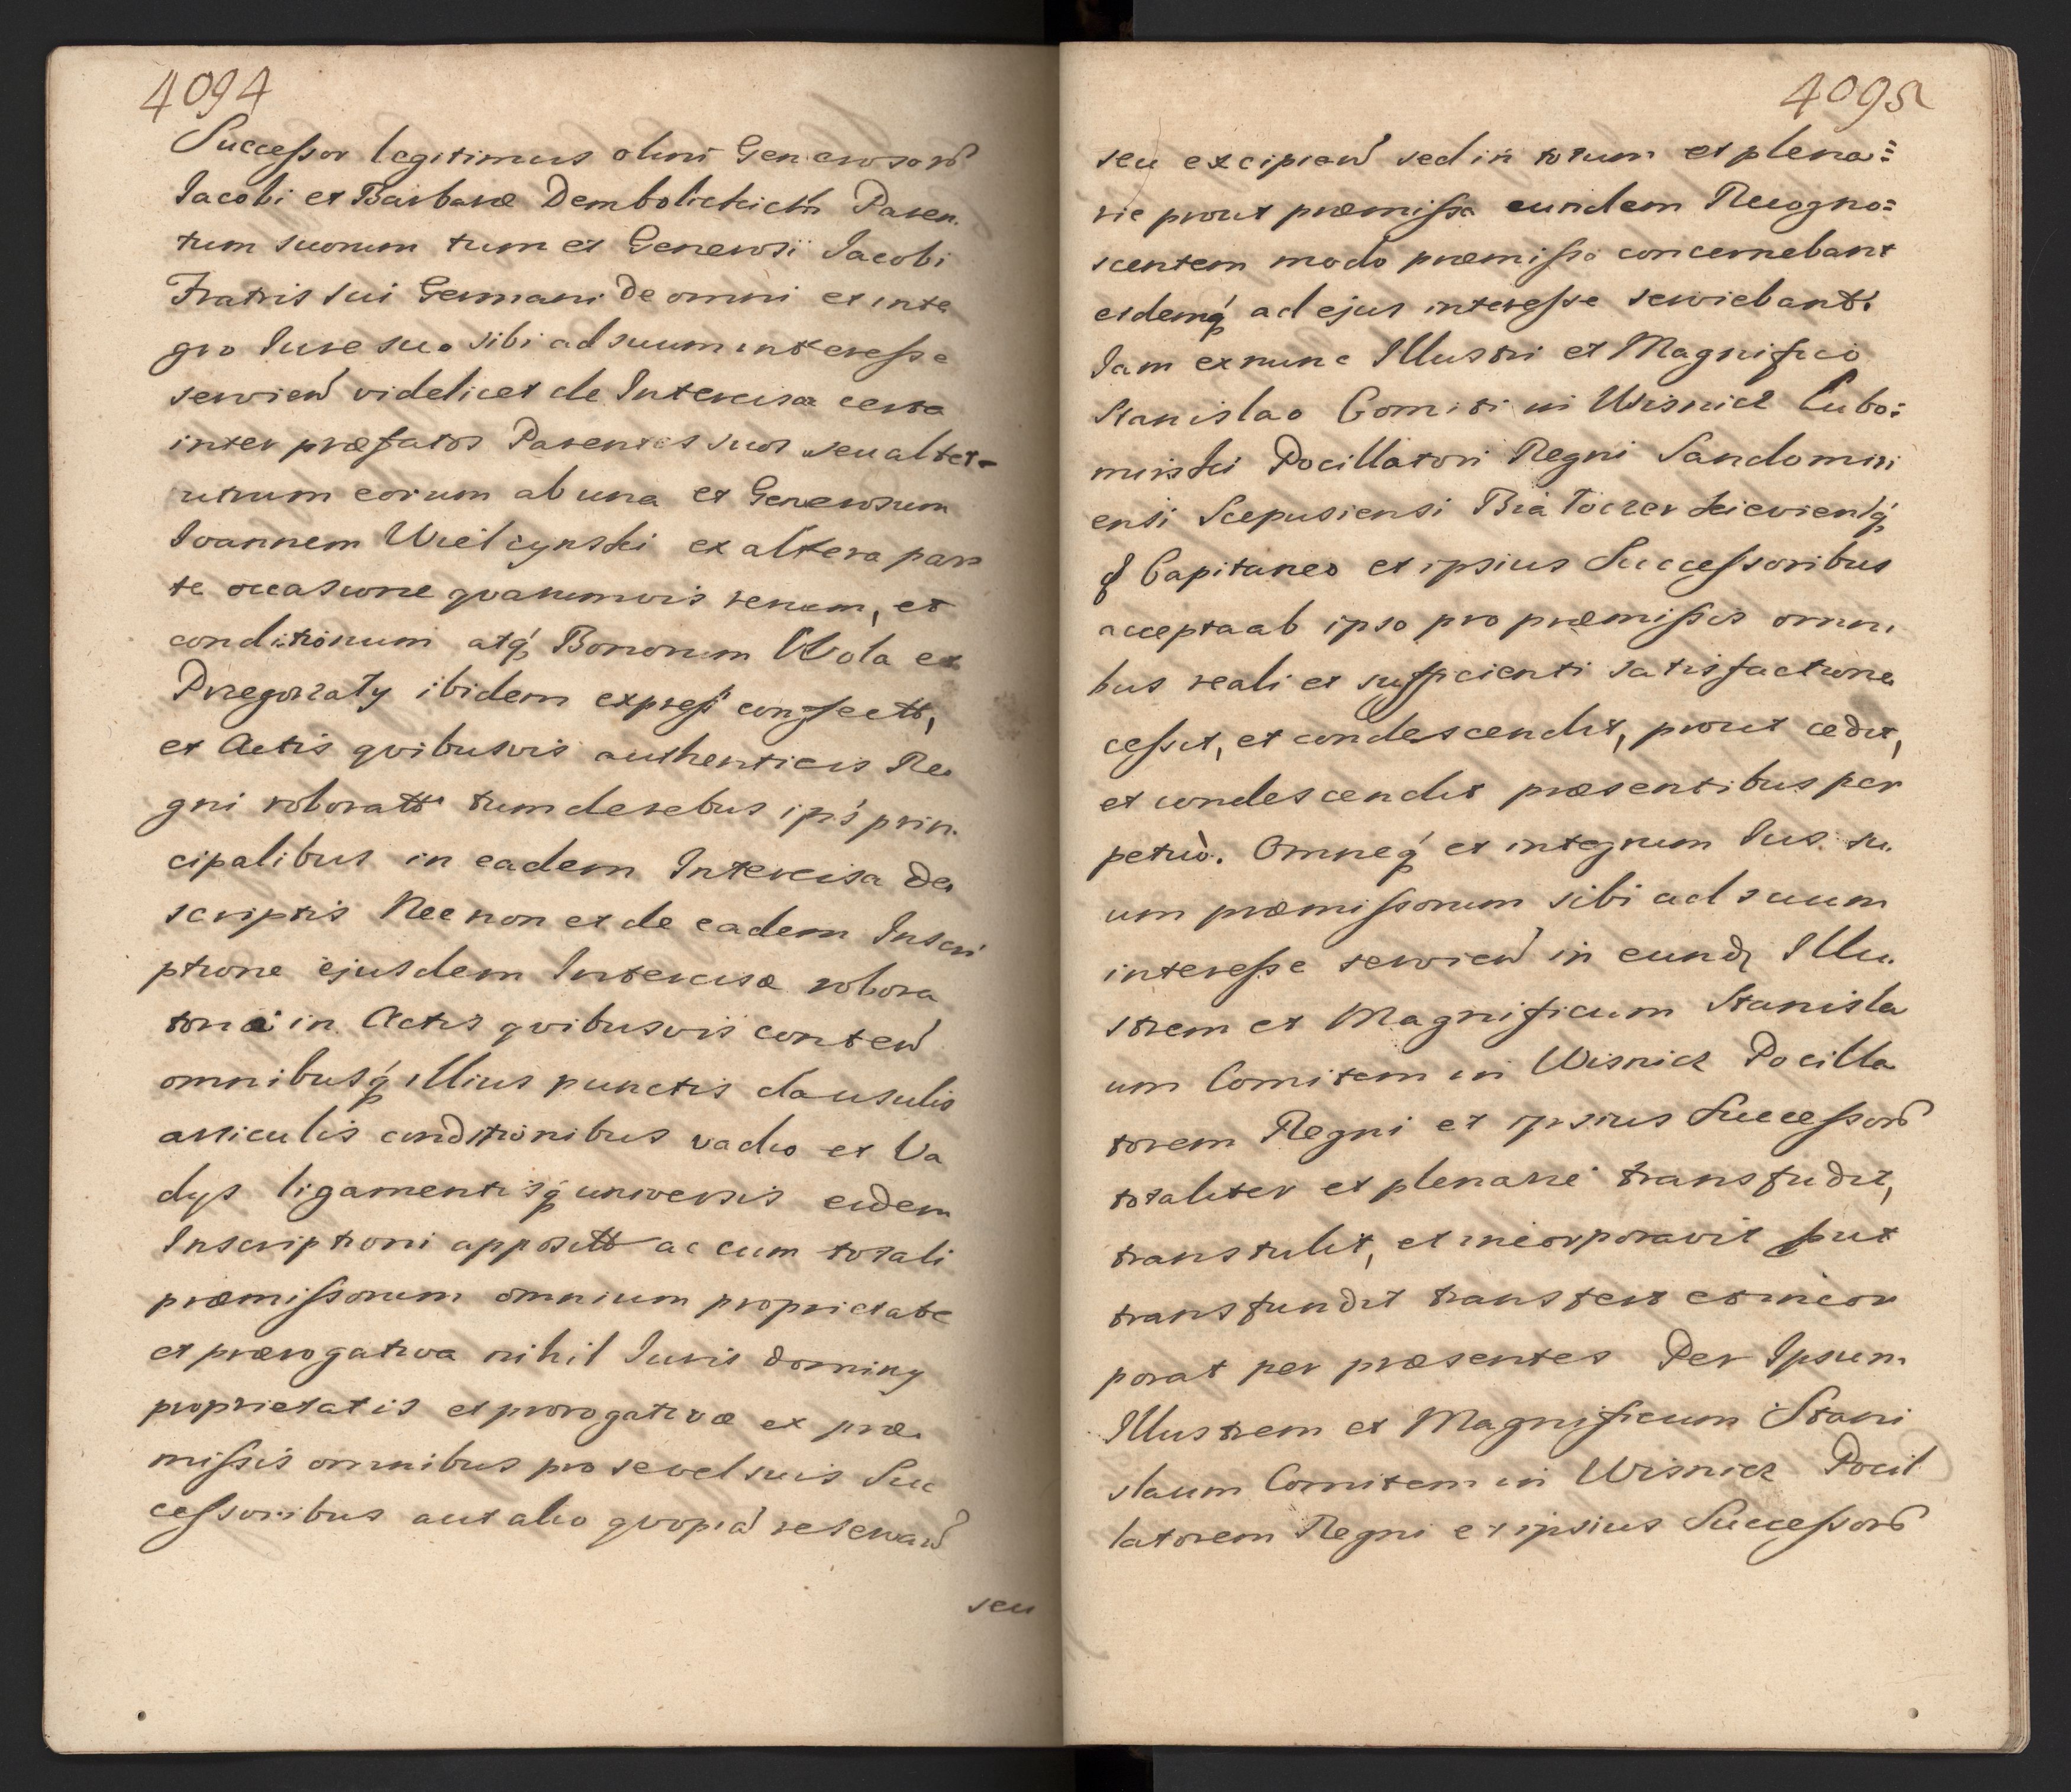 4094
Successor legitimus olim Generosorũ
Iacobi et Barbaræ Dembolickich Paren.
tum suorum tum et Generosi Iacobi
Fratris sui Germani de omni et inte
gro Iure suo sibi ad suum interesse
servien̄ videlicet de Intercisa certa
inter præfatos Parentes suos seu alter-
utrum eorum ab una et Generosum
Ioannem Wielczynski ex altera par
te occasione quarumvis rerum, et
conditionum atq́ Bonorum Wola et
Przegorzały ibidem express confectt,
et Actis qvibusvis authenticis Re
gni roboratt tum de rebus ips prin.
cipalibus in eadem Intercisa de
scriptis Nec non et de eadem Inscri
ptione ejusdem Intercisæ robora
toria in Actis qvibusvis conten̄
omnibusq́ illius punctis clausulis
articulis conditionibus vadio et Va
dys ligamentisq́ universis eidem
Inscriptioni appositt ac cum totali
præmissorum omnium proprietate
et prærogativa nihil Iuris dominy
proprietatis et prorogativæ ex præ
missis omnibus pro se vel suis Suc
cessoribus aut alio qvopia reservan̄
seu
4095
seu excipien̄ sed in totum et plena:
rie prout præmissa eundem Recogno:
scentem modo præmisso concernebant
eidemq́ ad ejus interesse serviebant.
Iam ex nunc Illustri et Magnifico
Stanislao Comiti in Wisnicz Lubo:
mirski Pocillatori Regni Sandomiri
ensi Scepusiensi Białocer kievienq́
Capitaneo et ipsius Successoribus
accepta ab ipso pro præmissis omni
bus reali et sufficienti satisfactione
cessit, et condescendit, prout cedit,
et condescendit præsentibus per
petuò. Omneq́ et integrum Ius su.
um præmissorum sibi ad suum
interesse servien̄ in eund Illu.
strem et Magnificum Stanisla
um Comitem in Wisnicz Pocilla
torem Regni et ipsius Successorũ
totaliter et plenarie transfudit,
transtulit, et incorporavit put
transfundit transfert et incor
porat per præsentes Per Ipsum
Illustrem et Magnificum Stani
slaum Comitem in Wisnicz Pocil
latorem Regni et ipsius Successorũ